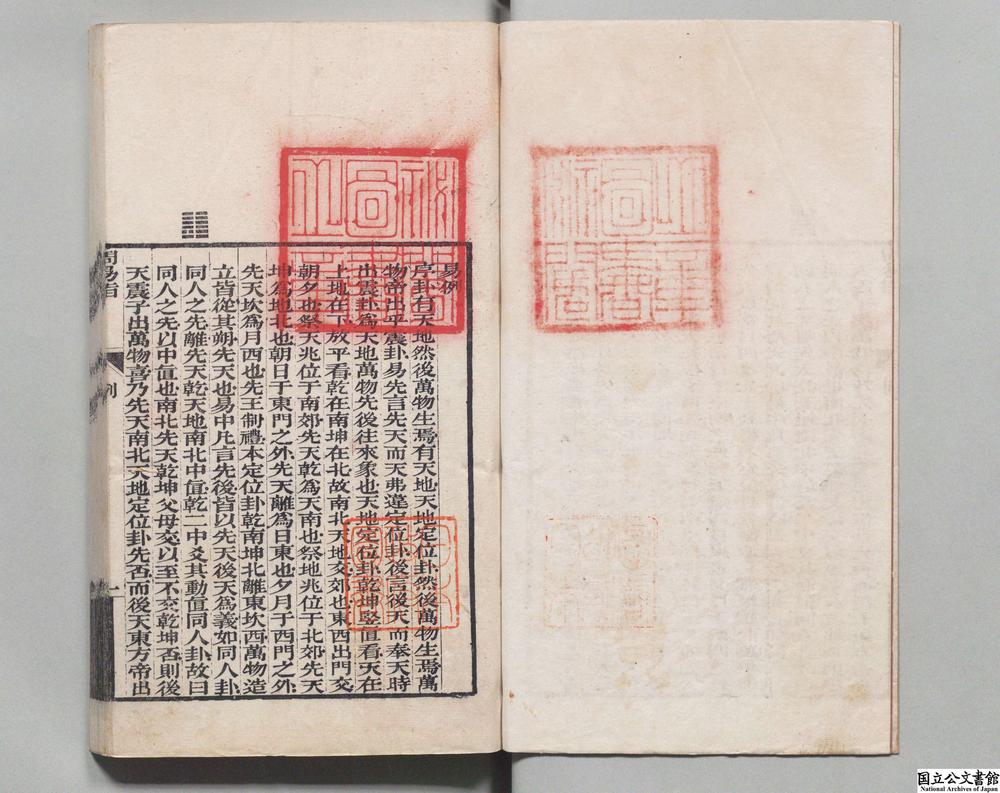 易例
序卦有天地然後萬物生焉有天地天地定位卦然後萬物生焉萬
物帝出乎震卦易先言先天而天弗違定位卦後言後天而奉天時
出震卦爲天地萬物先後往來象也天地定位卦乾坤竪值看天在
上地在下放平看乾在南坤在北故南北天地交郊也東西出門交
朝夕也祭天兆位于南郊先天乾爲天南也祭地兆位于北郊先天
坤爲地北也朝日于東門之外先天離爲日東也夕月于西門之外
先天坎爲月西也先王制禮本定位卦乾南坤北離東坎西萬物造
立皆從其朔先天也易中凡言先後皆以先天後天爲義如同人卦
同人之先離先天乾天地南北中值乾二中爻其動值同人卦故曰
同人之先以中值也南北先天乾坤父母交以至不交乾坤否則後
天震子出萬物喜乃先天南北天地定位卦先否而後天東方帝出
周易指
例
一
国立公文書館
National Archives of Japan